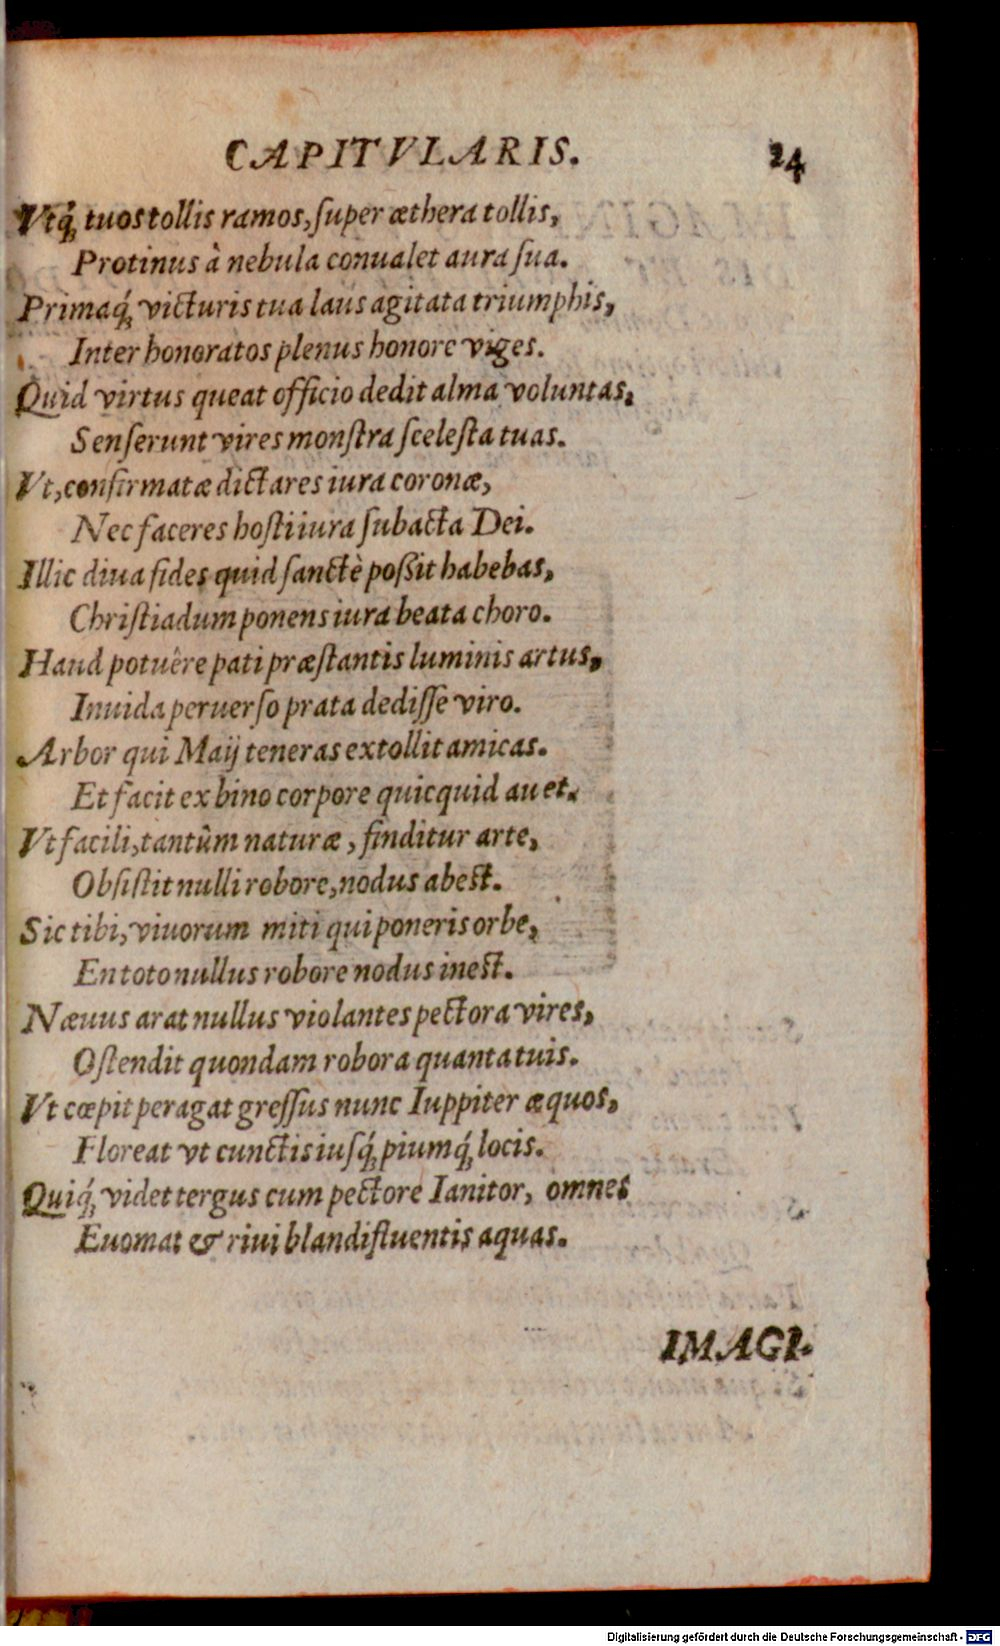 CAPITVLARIS. 24
Vtq́; tuos tollis ramos, ſuper æthera tollis,
Protinus à nebula conualet aura ſua.
Primaq́; victuris tua laus agitata triumphis,
Inter honoratos plenus honore viges.
Quid virtus queat officio dedit alma voluntas,
Senſerunt vires monſtra ſceleſta tuas.
Vt, confirmatæ dictares iura coronæ,
Nec faceres hoſti iura ſubacta Dei.
Illic diua fides quid ſanctè poſſit habebas,
Chriſtiadum ponens iura beata choro.
Haud potuêre pati præſtantis luminis artus,
Inuida peruerſo prata dediſſe viro.
Arbor qui Maij teneras extollit amicas.
Et facit ex bino corpore quicquid auet.
Vt facili, tantûm naturæ, finditur arte,
Obſiſtit nulli robore, nodus abest.
Sic tibi, viuorum miti qui poneris orbe,
En toto nullus robore nodus inest.
Næuus arat nullus violantes pectora vires,
Oſtendit quondam robora quanta tuis.
Vt cœpit peragat greſſus nunc Iuppiter æquos,
Floreat vt cunctis iuſq́; piumq́; locis.
Quiq́; videt tergus cum pectore Ianitor, omnes
Euomat & riui blandifluentis aquas.
IMAGI-
Digitalisierung gefördert durch die Deutsche Forschungsgemeinschaft - DFG